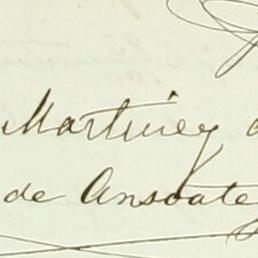 Martinez
de Ansoate